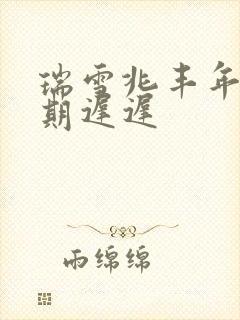 瑞雪兆丰年
期遲遲
雨绵绵